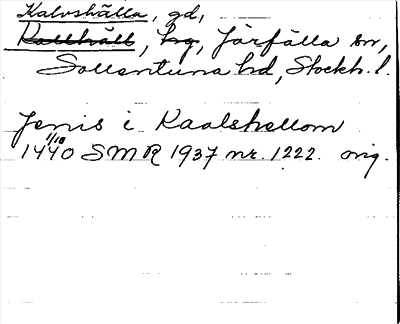 Kalvshälla, gd,
Kallhäll, hg, Järfälla sn,
Sollentuna hd, Stockh. l.
Jenis i Kaalshellom
1440 1/10 SMR 1937 nr. 1222. orig.